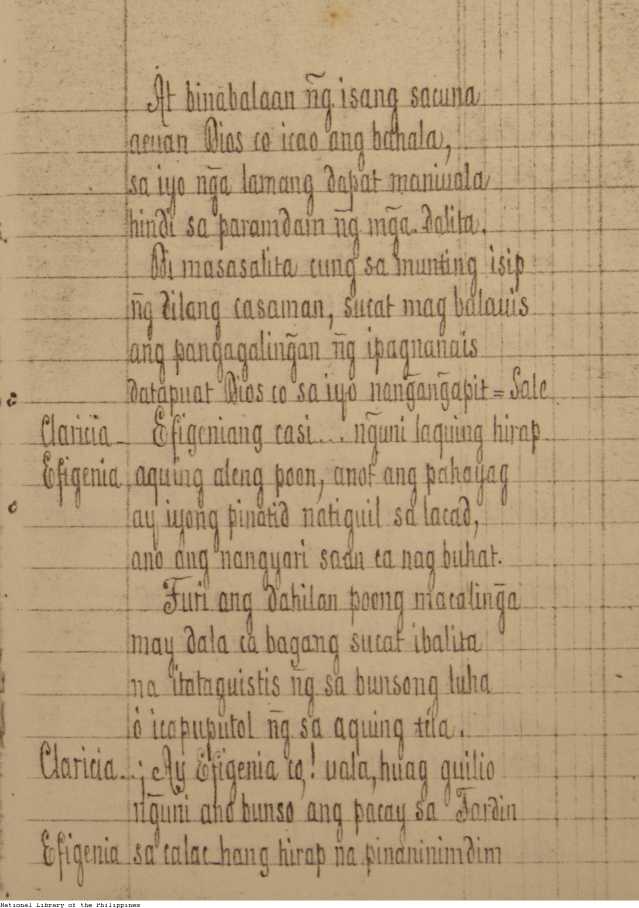 At binabalaan ñg isang sacuna
acuan Dios co icao ang bahala,
sa iyo ng̃a lamang dapat maniuala
hindi sa paramdam ñg mg̃a dalita.
Di masasalita cung sa munting isip
ñg dilang casaman, sucat mag balauis
ang pangagaling̃an ñg ipagnanais
datapuat Dios co sa iyo nang̃ang̃apit = Sale
Claricia _ Efigeniang casi... ng̃uni laquing hirap
Efigenia aquing aleng poon, anot ang pahayag
ay iyong pinatid natiguil sa lacad,
ano ang nangyari saan ca nag buhat.
Turi ang dahilan poong macaling̃a
may dala ca bagang sucat ibalita
na itataguistis ñg sa bunsong luha
ó icapuputol ñg sa aquing tila.
Claricia ..¡ Ay Efigenia co! uala, huag quilio
ng̃uni ano bunso ang pacay sa Jardin
Efigenia sa calac hang hirap na pinaninimdim
National Library of the Philippines